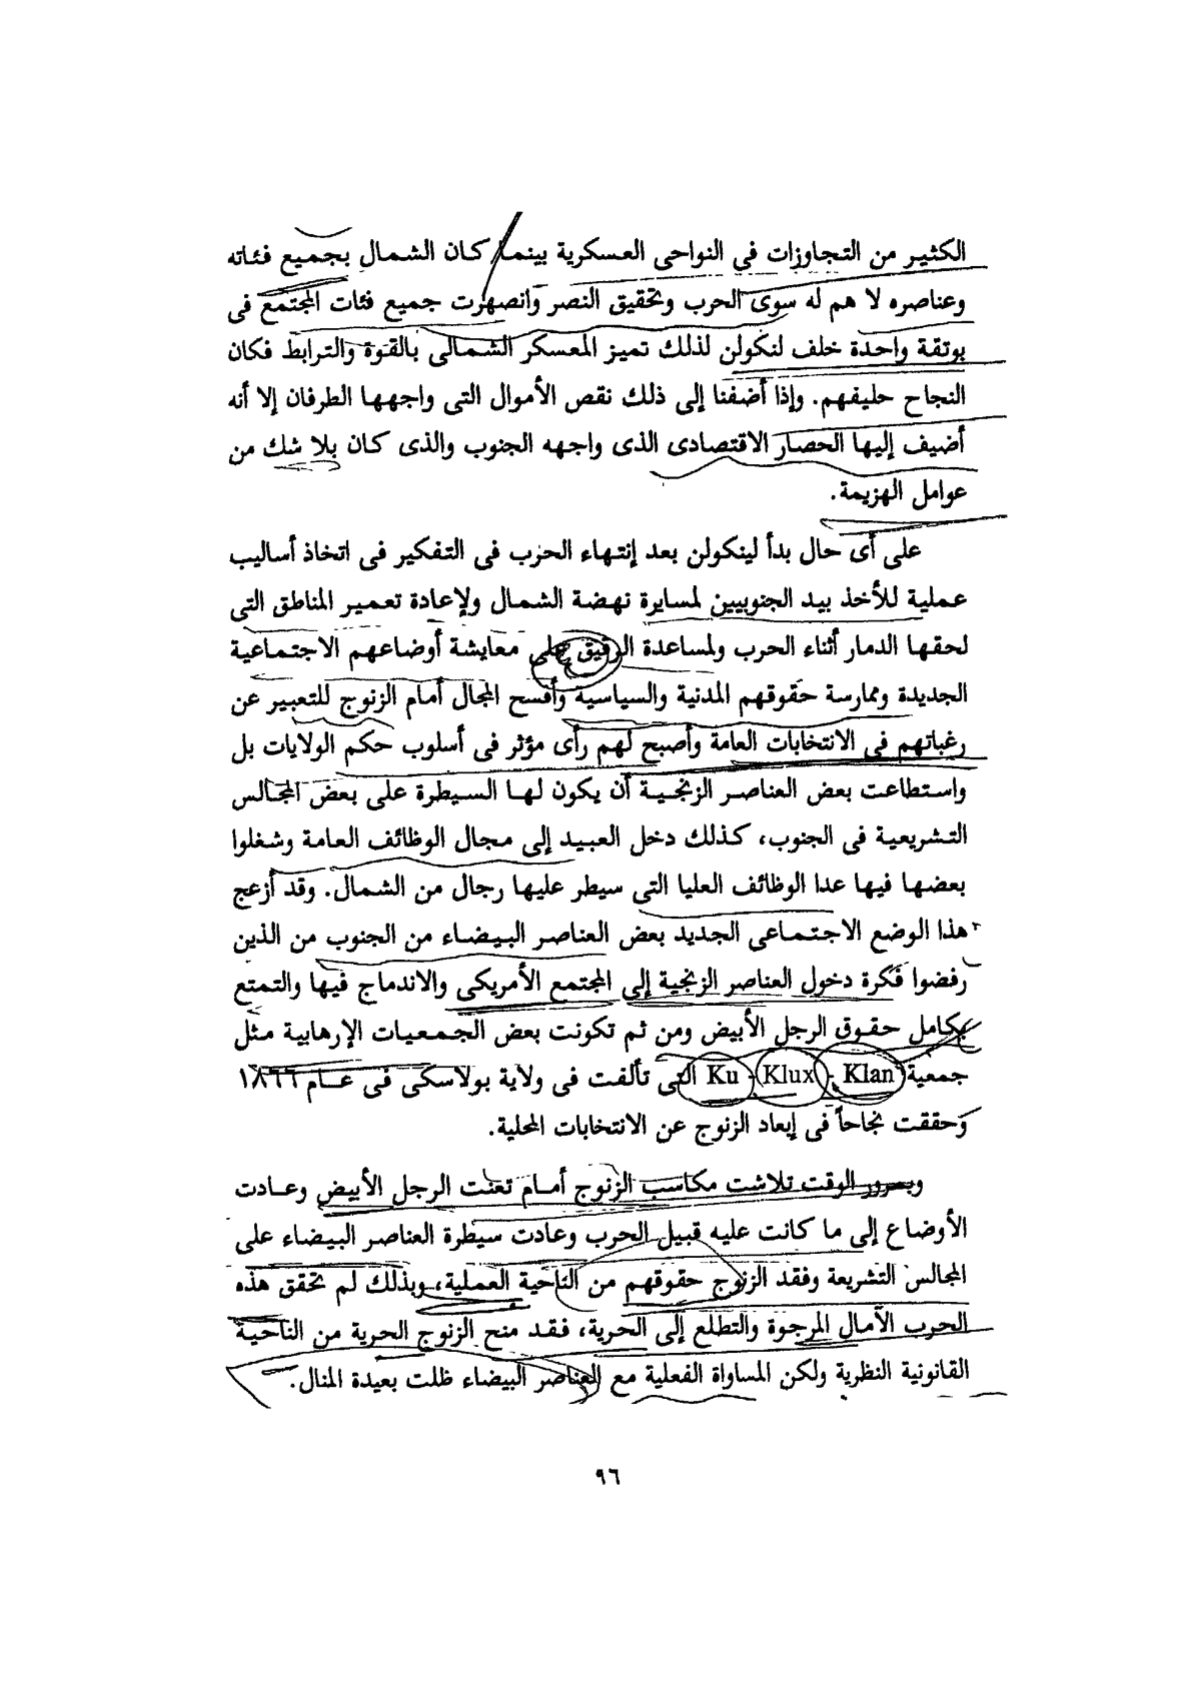 الكثير من التجاوزات فى النواحى العسكرية بينما كان الشمال بجميع فئاته
وعناصره لا هم له سوى الحرب وتحقيق النصر وانصهرت جميع فئات المجتمع فى
بوتقة واحدة خلف لنكولن لذلك تميز المعسكر الشمالى بالقوة والترابط فكان
النجاح حليفهم. وإذا أضفنا إلى ذلك نقص الأموال التى واجهها الطرفان إلا أنه
أضيف إليها الحصار الاقتصادى الذى واجهه الجنوب والذى كان بلا شك من
عوامل الهزيمة.
على أى حال بدأ لينكولن بعد إنتهاء الحرب فى التفكير فى اتخاذ أساليب
عملية للأخذ بيد الجنوبيين لمسايرة نهضة الشمال ولإعادة تعمير المناطق التى
لحقها الدمار أثناء الحرب ولمساعدة الرقيق على معايشة أوضاعهم الاجتماعية
الجديدة وممارسة حقوقهم المدنية والسياسية وأفسح المجال أمام الزنوج للتعبير عن
رغباتهم فى الانتخابات العامة وأصبح لهم رأى مؤثر فى أسلوب حكم الولايات بل
واستطاعت بعض العناصر الزنجية أن يكون لها السيطرة على بعض المجالس
التشريعية فى الجنوب، كذلك دخل العبيد إلى مجال الوظائف العامة وشغلوا
بعضها فيها عدا الوظائف العليا التى سيطر عليها رجال من الشمال. وقد أزعج
هذا الوضع الاجتماعى الجديد بعض العناصر البيضاء من الجنوب من الذين
رفضوا فكرة دخول العناصر الزنجية إلى المجتمع الأمريكى والاندماج فيها والتمتع
بكامل حقوق الرجل الأبيض ومن ثم تكونت بعض الجمعيات الإرهابية مثل
جمعية Ku - Klux - Klan التى تألفت فى ولاية بولاسكى فى عام ١٨٦٦
وحققت نجاحاً فى إبعاد الزنوج عن الانتخابات المحلية.
وبمرور الوقت تلاشت مكاسب الزنوج أمام تعنت الرجل الأبيض وعادت
الأوضاع إلى ما كانت عليه قبيل الحرب وعادت سيطرة العناصر البيضاء على
المجالس التشريعة وفقد الزنوج حقوقهم من الناحية العملية، وبذلك لم تحقق هذه
الحرب الآمال المرجوة والتطلع إلى الحرية، فقد منح الزنوج الحرية من الناحية
القانونية النظرية ولكن المساواة الفعلية مع العناصر البيضاء ظلت بعيدة المنال.
٩٦